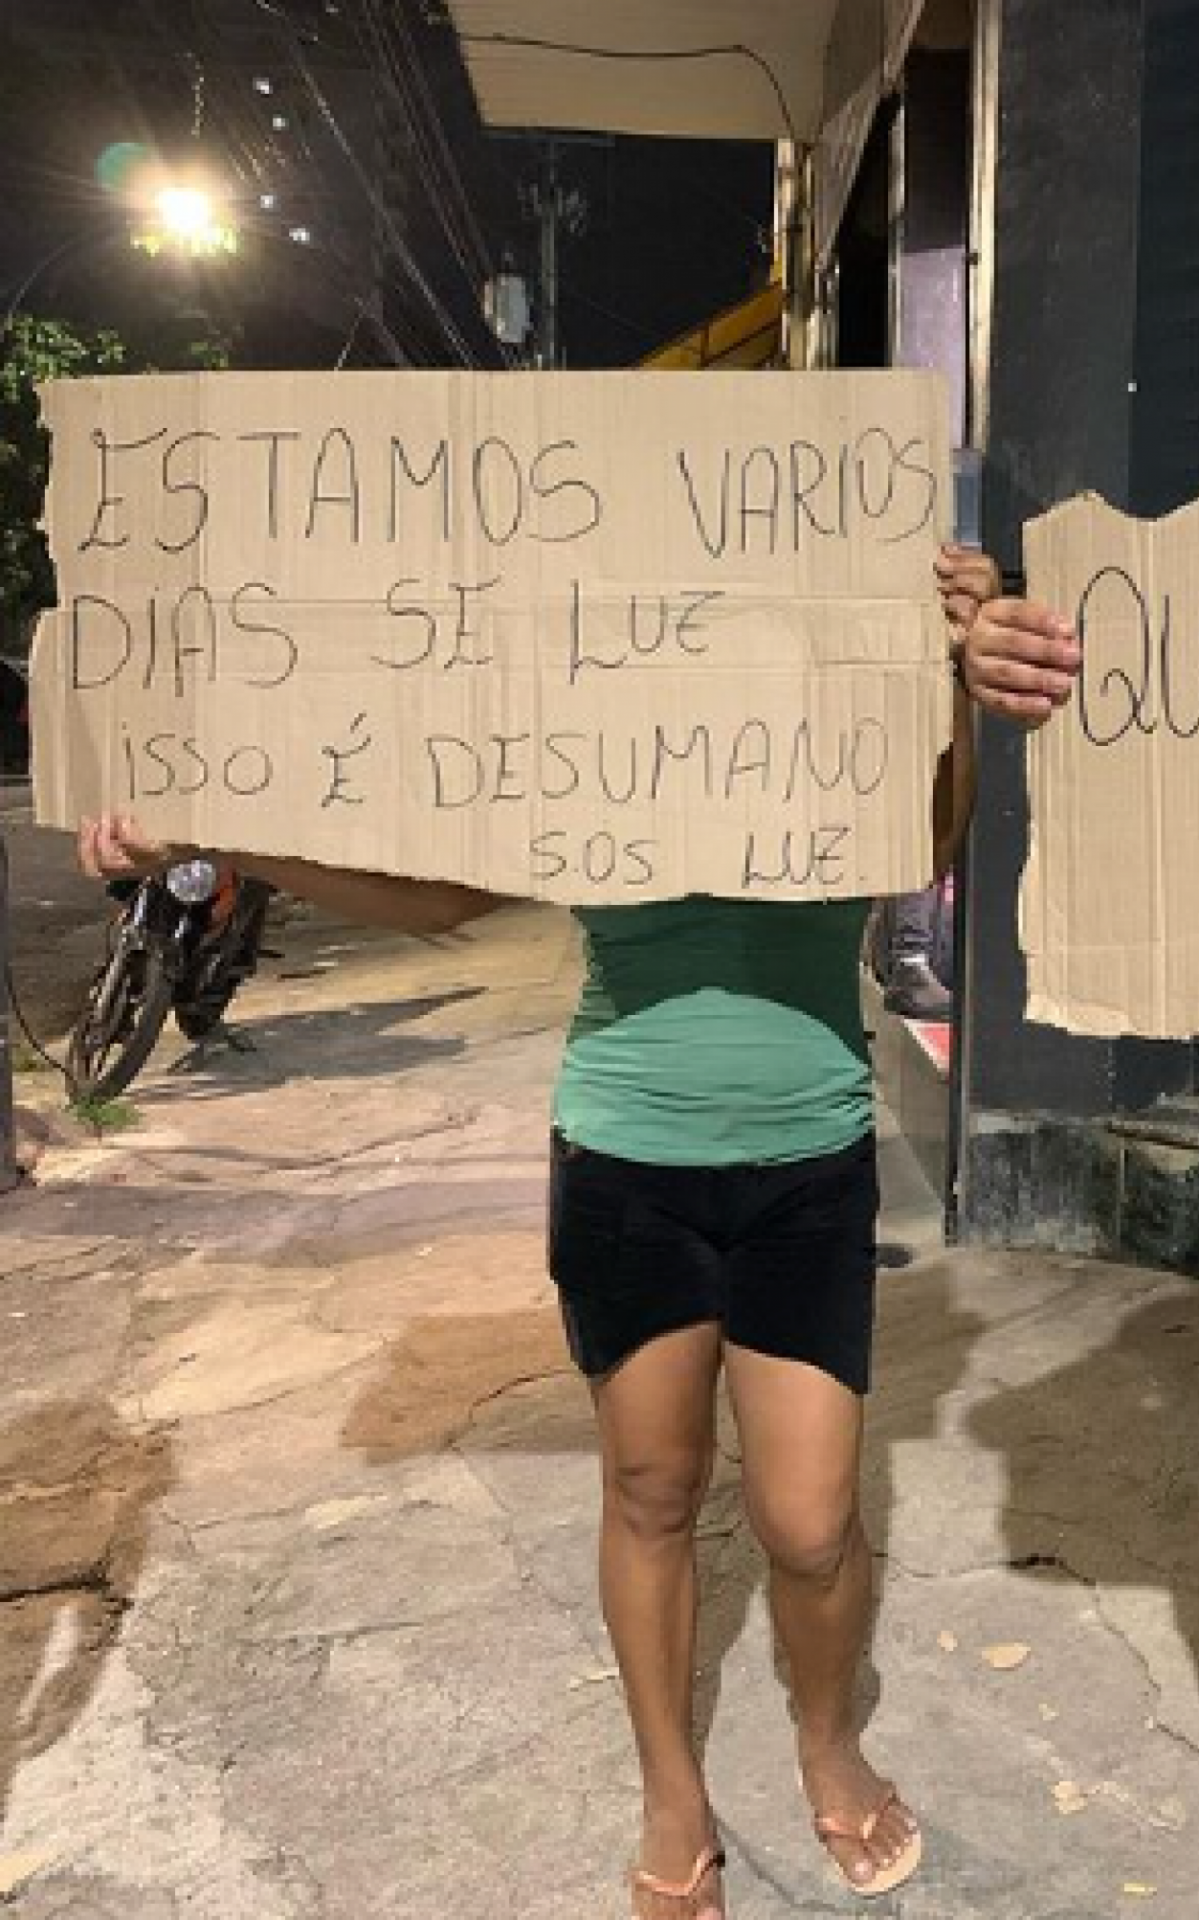 ESTAMOS VARIOS
DIAS SE LUZ
ISSO É DESUMANO
S.OS LUZ.
QU